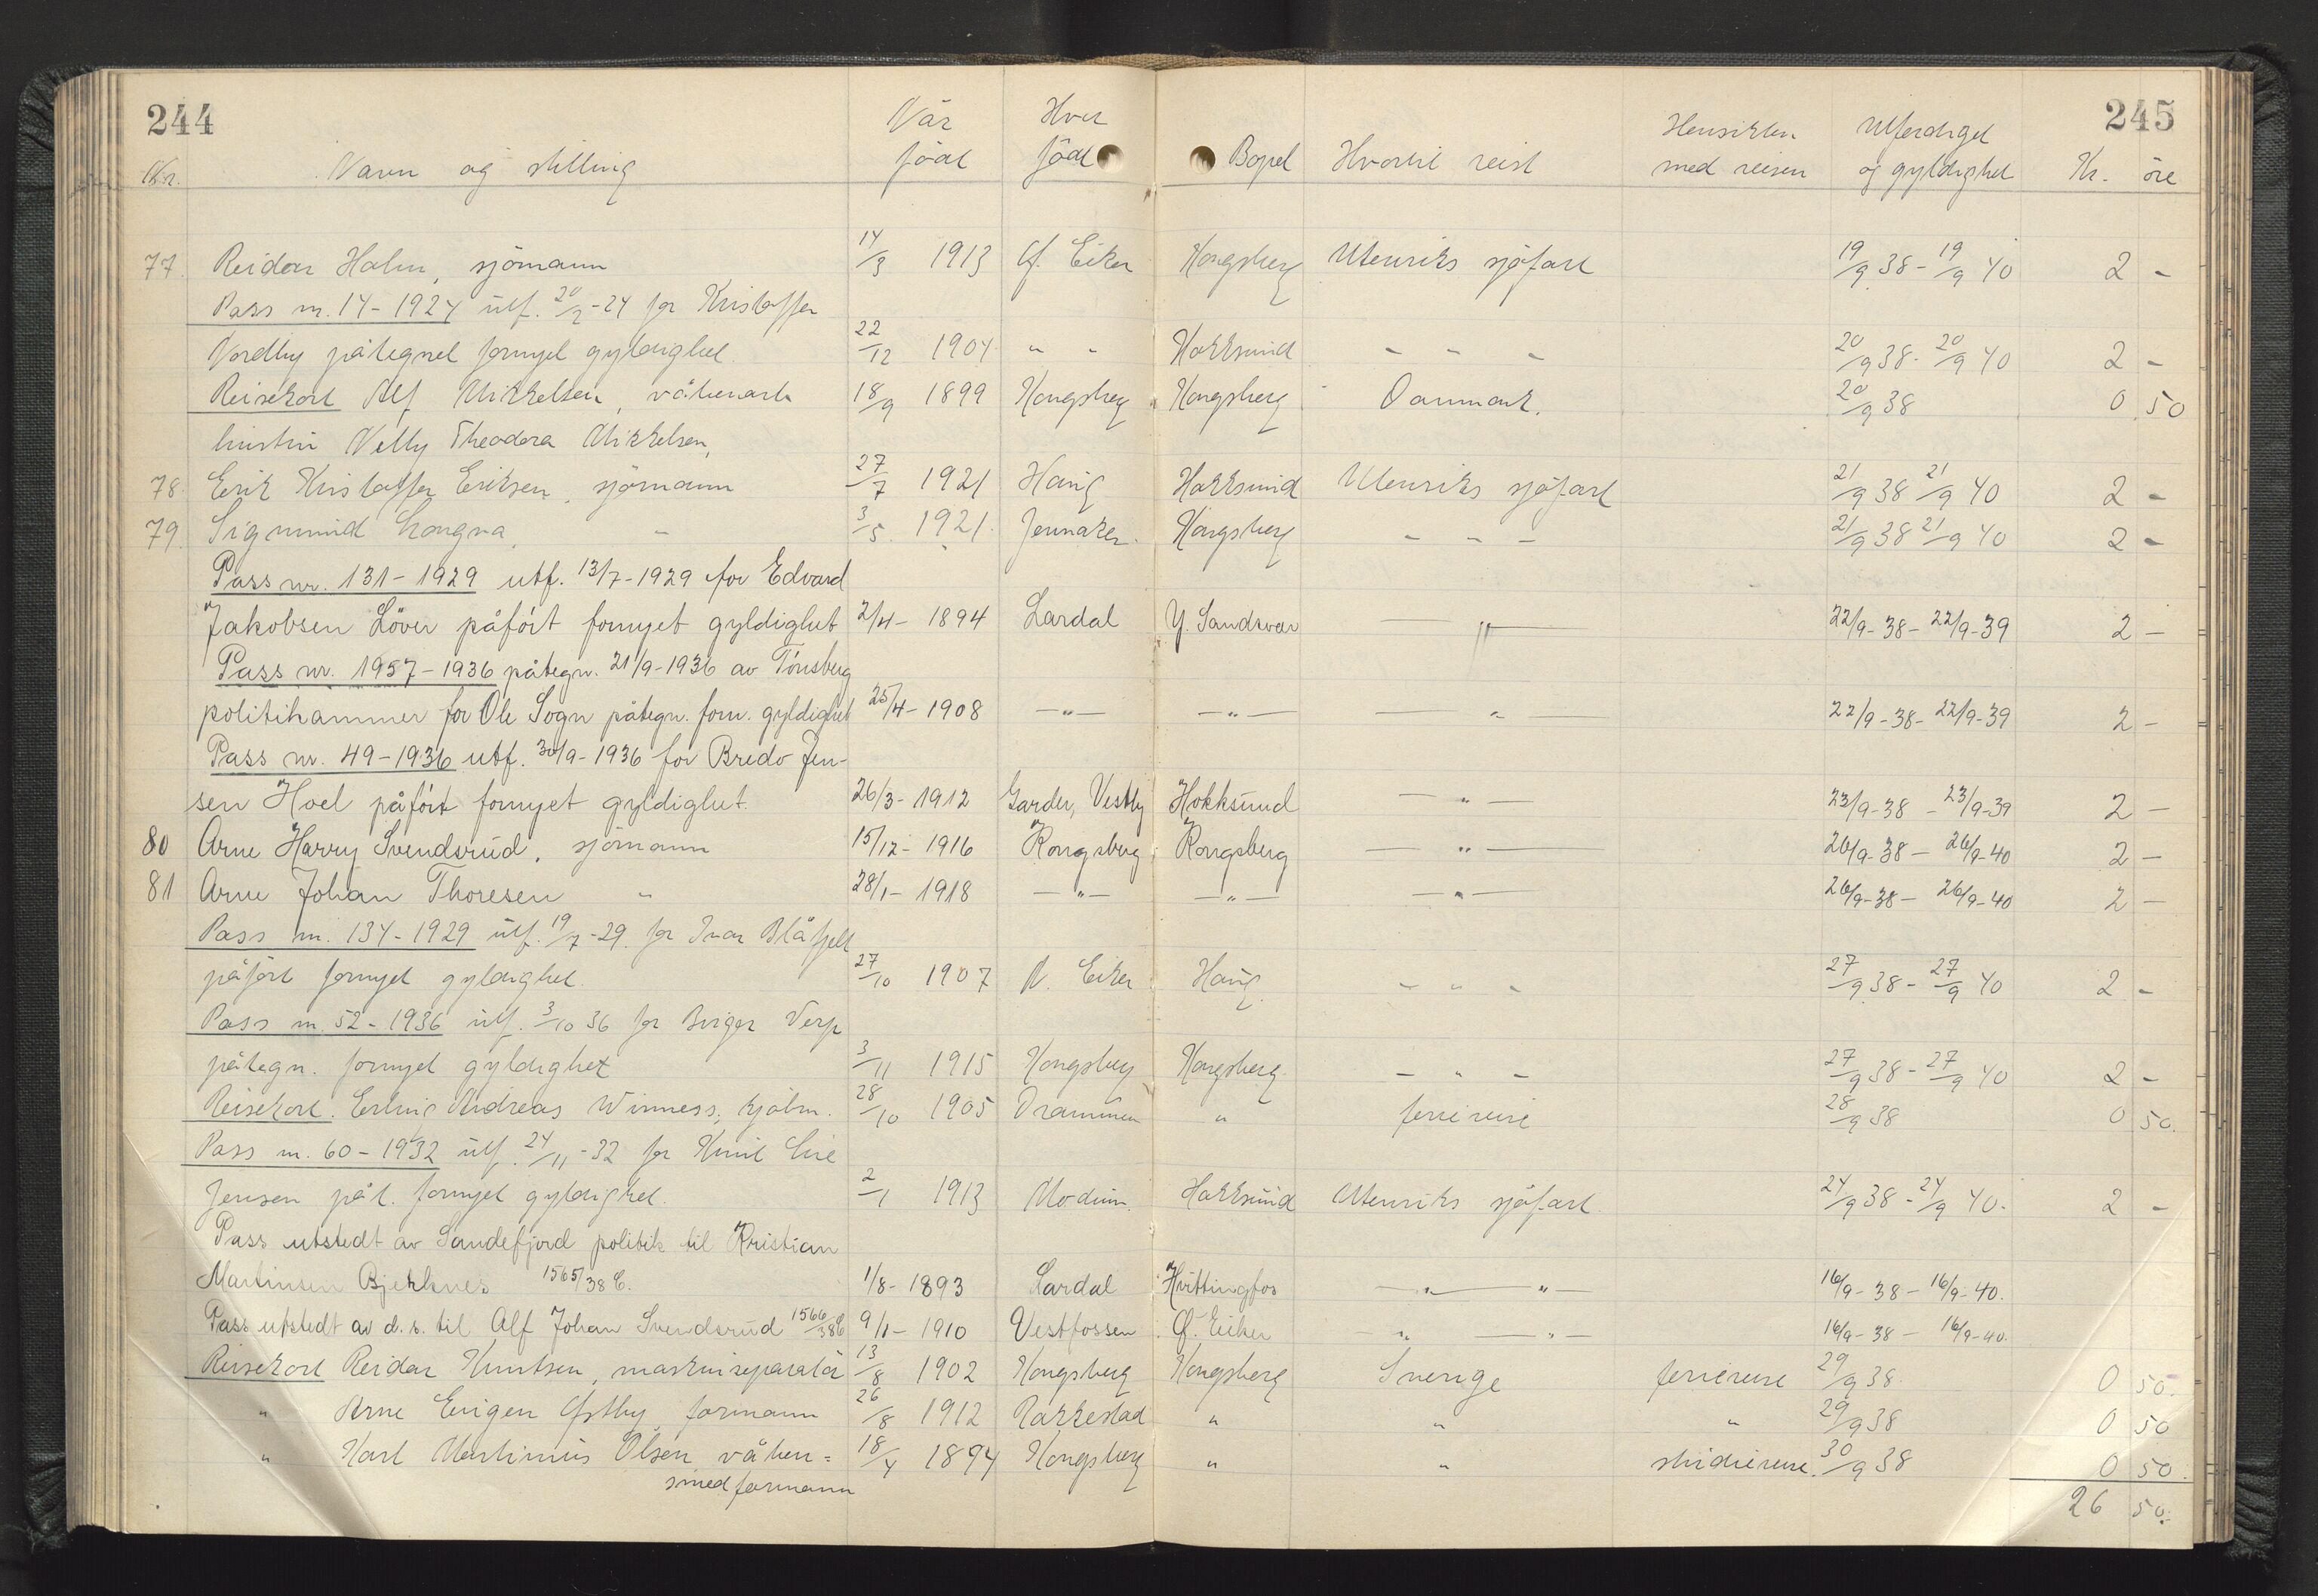 244 245
Når Hvor Hensikten Utferdiget
Nr. Navn og stilling född född Bopel Hvortil reist med reisen og gyldighet Kr. öre
77. Reidar Holm, sjömann 14/3 1913 Ö. Eiker Kongsberg Utenriks sjöfart 19/9 38 - 19/9 40 2 -
Pass nr. 14 - 1924 utf. 20/2 - 24 for Kristoffer
Nordby påtegnet fornyet gyldighet 22/12 1904. " " Hokksund - - - 20/9 38 - 20/9 40 2 -
Reisekort Alf Mikkelsen, våbenarb. 18/9 1899 Kongsberg Kongsberg Danmark. 20/9 38 0 50
hustru Nelly Theodora Mikkelsen,
78. Erik Kristoffer Eriksen, sjömann 27/7 1921 Haug Hokksund Utenriks sjöfart 21/9 38 21/9 40 2 -
79. Sigmund Longva, " 3/5. 1921. Jevnaker. Kongsberg - - - 21/9 38 21/9 40 2 -
Pass nr. 131 - 1929 utf. 13/7 - 1929 for Edvard
Jakobsen Löver påfört fornyet gyldighet 2/4 - 1894 Lardal Y. Sandsvær — " — 22/9 - 38 - 22/9 - 39 2 -
Pass nr. 1957 - 1936 påtegn. 21/9 - 1936 av Tönsberg
politikammer for Ole Sogn påtegn. forn. gyldighet 25/4 - 1908 — " — — " — — " — 22/9 - 38 - 22/9 - 39 2 -
Pass nr. 49 - 1936 utf. 30/9 - 1936 for Bredo Jen-
sen Hoel påfört fornyet gyldighet. 26/3 - 1912 Garder, Vestby Hokksund — " — 23/9 - 38 - 23/9 - 39 2 -
80 Arne Harry Svendsrud, sjömann 15/12 - 1916 Kongsberg Kongsberg — " — 26/9 - 38 - 26/9 - 40 2 -
81 Arne Johan Thoresen " 28/1 - 1918 — " — — " — — " — 26/9 - 38 - 26/9 - 40 2 -
Pass nr. 134 - 1929 utf. 19/7 - 29. for Ivar Blåfjell
påfört fornyet gyldighet. 27/10 1907 N. Eiker Haug. - " - 27/9 38 - 27/9 40 2 -
Pass nr. 52 - 1936 utf. 3/10 36 for Birger Verp
påtegn. fornyet gyldighet 3/11 1915 Kongsberg Kongsberg. - " - 27/9 38 - 27/9 40 2 -
Reisekort. Erling Andreas Winness, kjölm. 28/10 1905 Drammen " feriereise 28/9 38 0 50.
Pass nr. 60 - 1932 utf. 24/11 - 32 for Knut Lie
Jensen påt. fornyet gyldighet. 2/1 1913 Modum. Hokksund Utenriks sjöfart 24/9 38 - 24/9 40. 2 -
Pass utstedt av Sandefjord politik til Kristian
Martinsen Bjerknes 1565/38 C. 1/8 - 1893 Lardal Hvittingfos — " — " — 16/9 - 38 - 16/9 - 40.
Pass utstedt av d. s. til Alf Johan Svendsrud 1566/38 C 9/1 - 1910 Vestfossen Ö. Eiker — " — " — 16/9 - 38 - 16/9 - 40.
Reisekort Reidar Knutsen, maskinreparatör 13/8 1902 Kongsberg Kongsberg Sverige feriereise 29/9 38. 0 50.
" Arne Eugen Östby, formann 26/8 1912 Rakkestad " " " 29/9 38 0 50
" Karl Martinius Olsen våben= 18/4 1894 Kongsberg " " studiereise. 30/9 38 0 50.
smed formann
26 50.